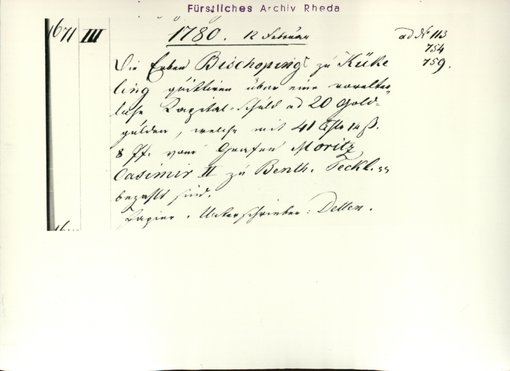 Fürstliches Archiv Rheda
1671 III 1780. 12 Februar ad No 113
754
759.
Die Erben Bischoping zu Küke
ling quittiren über eine
liche Kapital-Schuld ad 20 Gold-
gulden, welche mit 41 Thlr 14 ß.
8 Pf. vom Grafen Moritz
Casimir II zu Benth. Teckl.
bezahlt sind.
Papier. Unterschrieben: Detten.